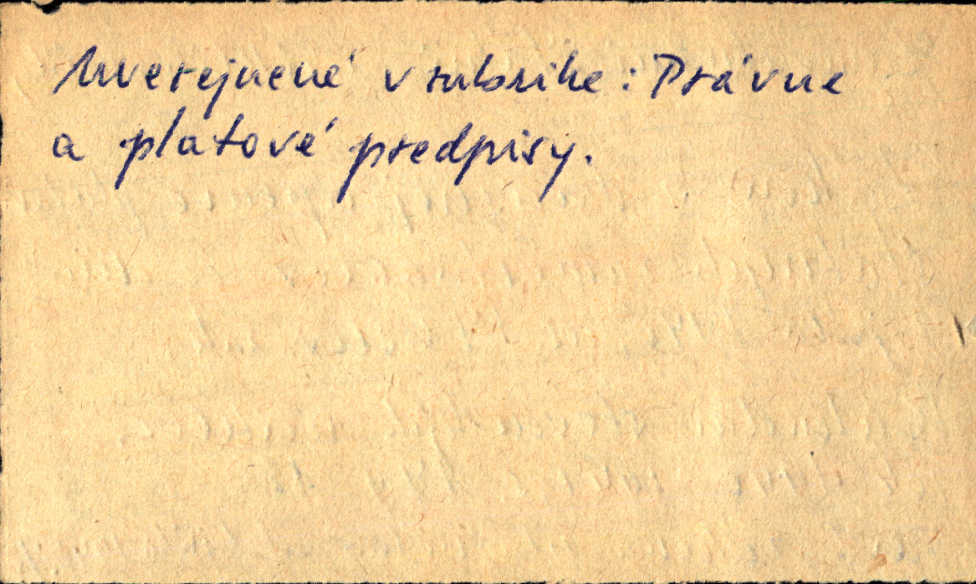 Uverejnené v rubrike: Právne
a platové predpisy.